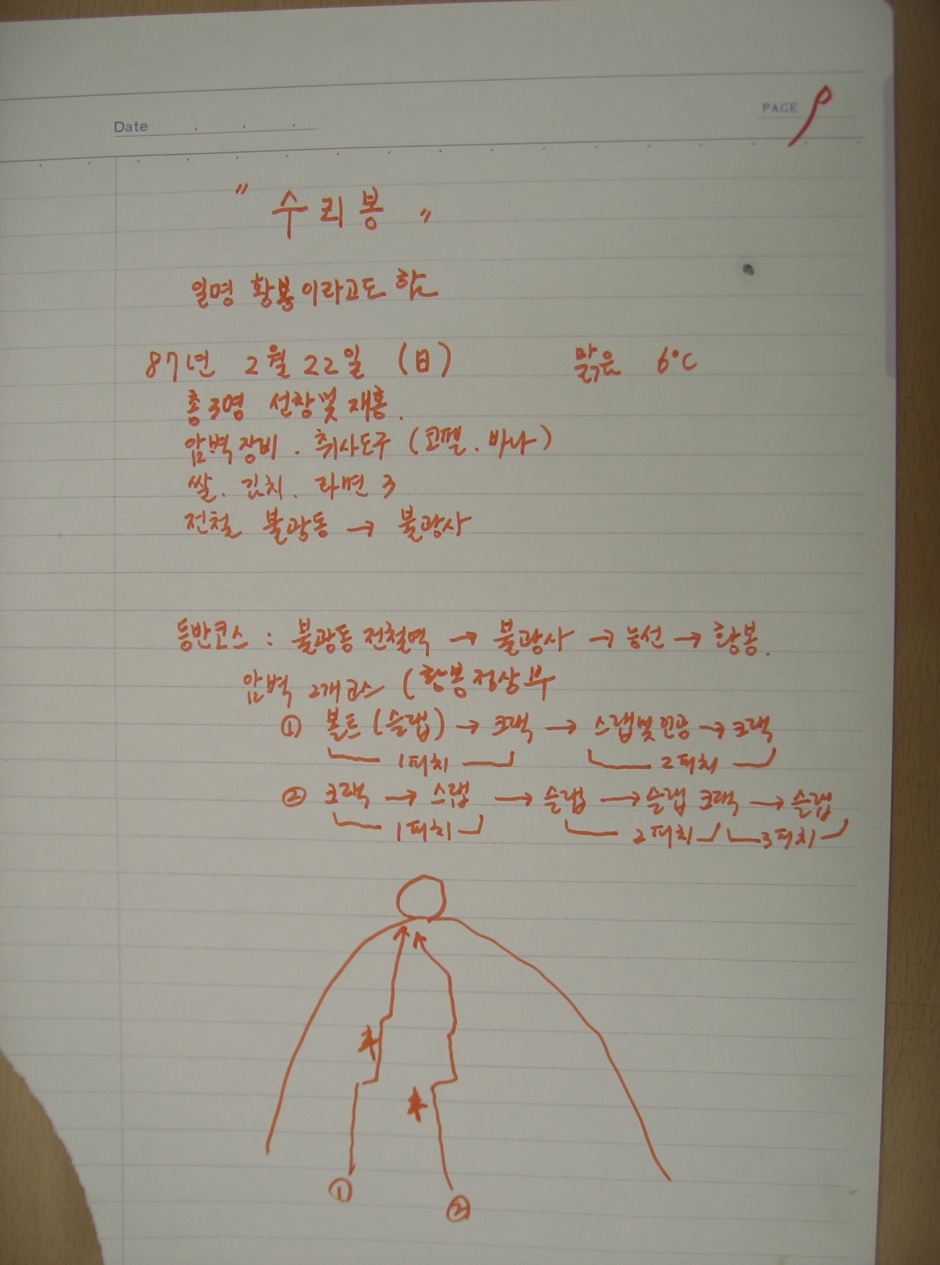 Date
PAGE 9
" 수리봉 "
일명 황봉이라고도 함
87년 2월 22일 (日) 맑음 6°C
총3명 선창및 재홍.
암벽장비. 취사도구 (코펠. 바나)
쌀. 김치. 라면 3
전철 불광동 → 불광사
등반코스 : 불광동 전철역 → 불광사 → 능선 → 황봉.
암벽 2개코스 (황봉정상부
① 볼트(슬랩) → 크랙 → 스랩및인공 → 크랙
1피치 2피치
② 크랙 → 스랩 → 슬랩 → 슬랩 크랙 → 슬랩
1피치 2피치 3피치
① ②